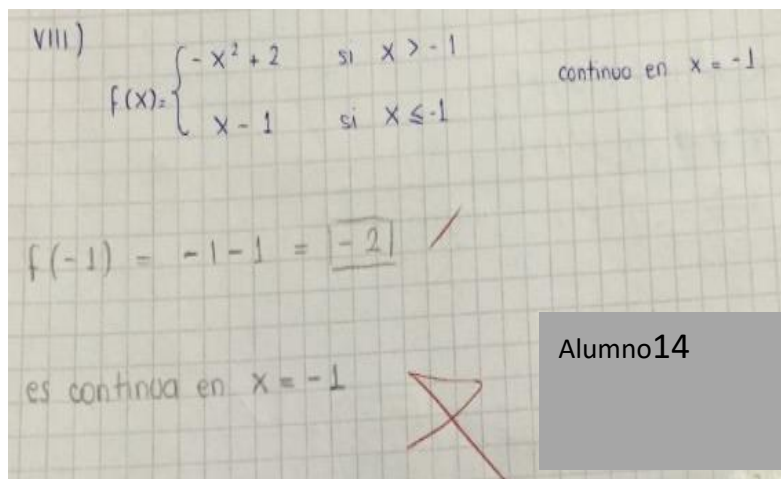 VIII)
f(x)= { -x² + 2 si x > -1
x - 1 si x ≤ -1
continuo en x = -1
f(-1) = -1-1 = -2
es continua en x = -1
Alumno14